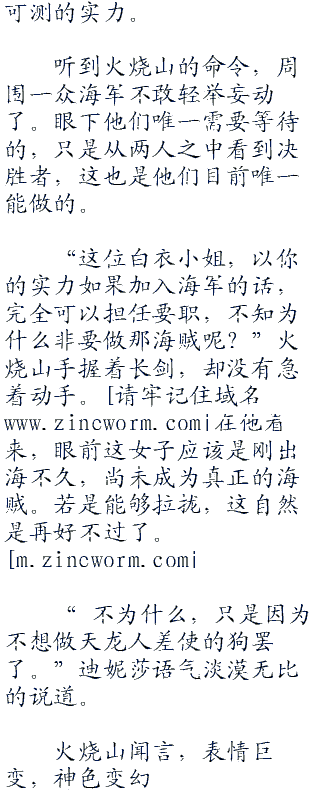 可测的实力。
听到火烧山的命令，周
围一众海军不敢轻举妄动
了。眼下他们唯一需要等待
的，只是从两人之中看到决
胜者，这也是他们目前唯一
能做的。
“这位白衣小姐，以你
的实力如果加入海军的话，
完全可以担任要职，不知为
什么非要做那海贼呢？”火
烧山手握着长剑，却没有急
着动手。[请牢记住域名
www.zincworm.com|在他看
来，眼前这女子应该是刚出
海不久，尚未成为真正的海
贼。若是能够拉拢，这自然
是再好不过了。
[m.zincworm.com|
“ 不为什么，只是因为
不想做天龙人差使的狗罢
了。”迪妮莎语气淡漠无比
的说道。
火烧山闻言，表情巨
变，神色变幻